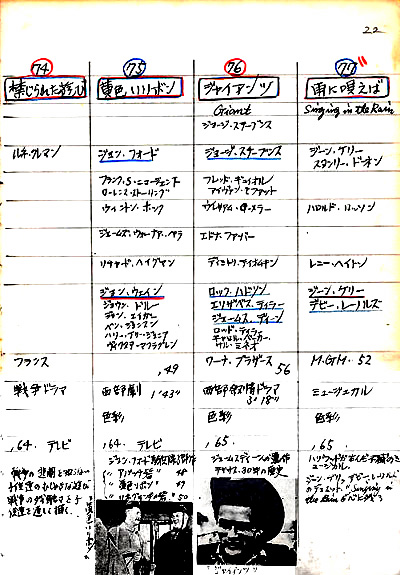 22
74
75
76
77
禁じられた遊び
黄色いリボン
ジャイアンツ
雨に唄えば
Giant
Singing in the Rain
ジョージ・スチーブンス
ルネ・クレマン
ジョン・フォード
ジョージ・スチーブンス
ジーン・ケリー
スタンリー・ドーネン
フランク・S・ニュージェント
ローレンス・ストーリング
フレッド・ギュイオル
アイヴァン・モファット
ウィントン・ホック
ウイリアム・C・メラー
ハロルド・ロッソン
ジェームズ・ウォーナ・ベラ
エドナ・ファーバー
リチャード・ヘイグマン
ディミトリ・ティオムキン
レニー・ヘイトン
ジョン・ウェイン
ジョウン・ドルー
ジョン・エイガー
ベン・ジョンスン
ハリー・ケリー・ジュニア
ヴィクター・マクラグレン
ロック・ハドソン
エリザベス・テイラー
ジェームス・ディーン
ロッド・テイラー
キャロル・ベーカー
サル・ミネオ
ジーン・ケリー
デビー・レーノルズ
フランス
, 49
ワーナ・ブラザース
56
M.G.M. 52
戦争ドラマ
西部劇 1°43"
西部叙情ドラマ
3°18"
ミュージカル
色彩
色彩
色彩
, 64. テレビ
, 64. テレビ
, 65.
, 65.
戦争の悲劇を
戦争の残酷さを子
供達を通して描く.
ジョン・フォード騎兵隊3部作
「アパッチ砦」 48
「黄色いリボン」 49
「リオ・グランデの砦」 50
ジェームスディーンの遺作
テキサス, 30年の歴史
ミュージカル.
"Singing in
the Rain"
"ジャイアンツ"